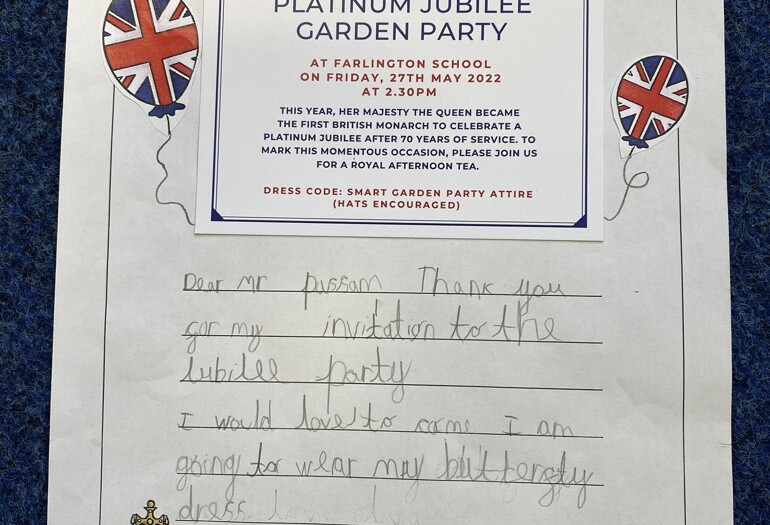 PLATINUM JUBILEE
GARDEN PARTY
AT FARLINGTON SCHOOL
ON FRIDAY, 27TH MAY 2022
AT 2.30PM
THIS YEAR, HER MAJESTY THE QUEEN BECAME
THE FIRST BRITISH MONARCH TO CELEBRATE A
PLATINUM JUBILEE AFTER 70 YEARS OF SERVICE. TO
MARK THIS MOMENTOUS OCCASION, PLEASE JOIN US
FOR A ROYAL AFTERNOON TEA.
DRESS CODE: SMART GARDEN PARTY ATTIRE
(HATS ENCOURAGED)
Dear Mr passam Thank you
for my invitation to the
Jubilee party
I would love to come I am
going to wear my butterfly
dress